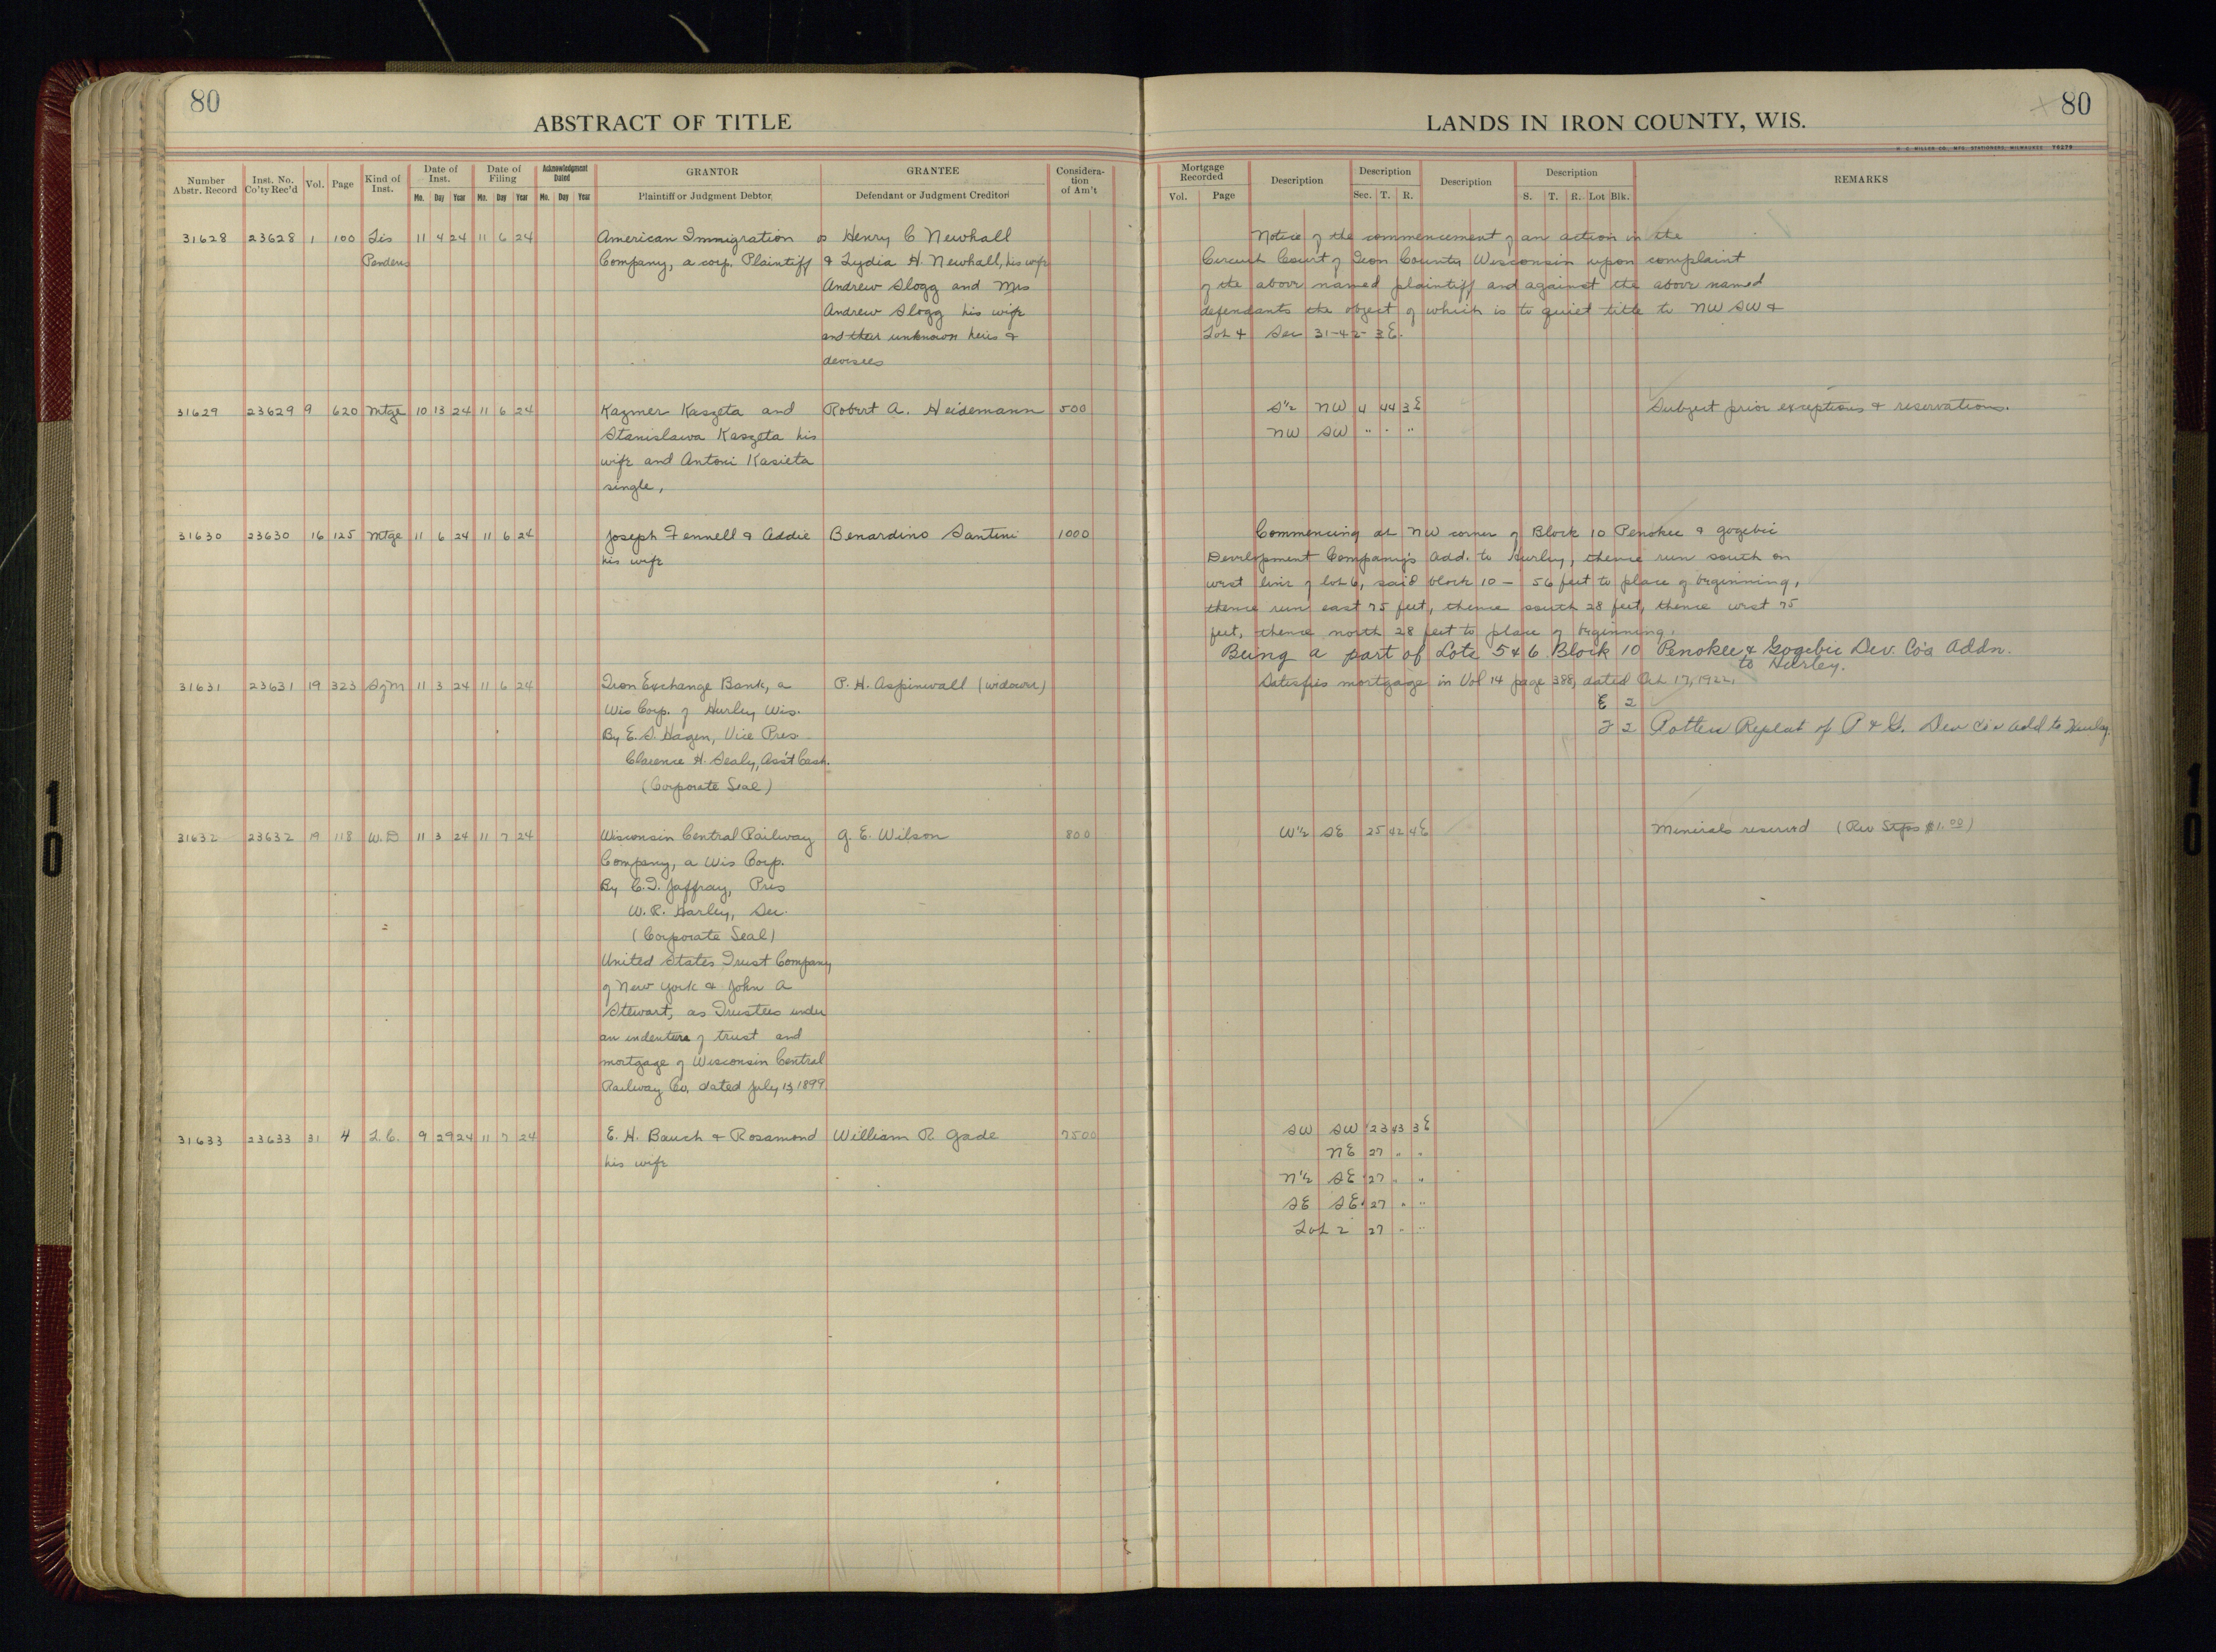 80
ABSTRACT OF TITLE
Number Abstr. Record
Inst. No. Co'ty Rec'd
Vol.
Page
Kind of Inst.
Date of Inst.
Mo. Day Year
Date of Filing
Mo. Day Year
Acknowledgment Dated
Mo. Day Year
GRANTOR
Plaintiff or Judgment Debtor
GRANTEE
Defendant or Judgment Creditor
Consideration of Am't
31628 23628 1 100 Lis 11 4 24 11 6 24 American Immigration vs Henry C Newhall
Pendens Company, a corp. Plaintiff & Lydia H. Newhall, his wife
Andrew Slogg and Mrs
Andrew Slogg his wife
and their unknown heirs &
devisees
31629 23629 9 620 Mtge 10 13 24 11 6 24 Kazmer Kaszeta and Robert A. Heidemann 500
Stanislawa Kaszeta his
wife and Antoni Kasieta
single,
31630 23630 16 125 Mtge 11 6 24 11 6 24 Joseph Fennell & Addie Benardino Santini 1000
his wife
31631 23631 19 323 SgM 11 3 24 11 6 24 Iron Exchange Bank, a P. H. Aspinwall (widower)
Wis Corp. of Hurley Wis.
By E. S. Hagen, Vice Pres
Clarence H. Sealy, Ass't Cash.
(Corporate Seal)
31632 23632 19 118 W. D 11 3 24 11 7 24 Wisconsin Central Railway G. E. Wilson 800
Company, a Wis Corp.
By C. T. Jaffray, Pres
W. R. Harley, Sec.
(Corporate Seal)
United States Trust Company
of New York & John A
Stewart, as Trustees under
an indenture of trust and
mortgage of Wisconsin Central
Railway Co. dated July 13, 1899
31633 23633 31 4 L. C. 9 29 24 11 7 24 E. H. Bauch & Rosamond William R. Gade 7500
his wife
80
LANDS IN IRON COUNTY, WIS.
H. C. MILLER CO., MFG. STATIONERS, MILWAUKEE
Mortgage Recorded
Vol. Page
Description
Description
Sec. T. R.
Description
Description
S. T. R. Lot Blk.
REMARKS
Notice of the commencement of an action in the
Circuit Court of Iron County Wisconsin upon complaint
of the above named plaintiff and against the above named
defendants the object of which is to quiet title to NW SW &
Lot 4 Sec 31-42-3E.
S½ NW 4 44 3E Subject prior exceptions & reservations.
NW SW " " "
Commencing at NW corner of Block 10 Penokee & Gogebic
Development Company's Add. to Hurley, thence run south on
west line of lot 6, said block 10 - 56 feet to place of beginning,
thence run east 75 feet, thence south 28 feet, thence west 75
feet, thence north 28 feet to place of beginning.
Being a part of Lots 5 & 6 Block 10 Penokee & Gogebic Dev. Co's Addn.
to Hurley.
Satisfies mortgage in Vol 14 page 388, dated Oct 17, 1922.
E 2
F 2 Potten Replat of P & G. Dev Co's add to Hurley
W½ SE 25 42 4E Minerals reserved (Rev Stps $1.00)
SW SW 23 43 3E
NE 27 " "
N½ SE 27 " "
SE SE 27 " "
Lot 2 27 " "
10
10